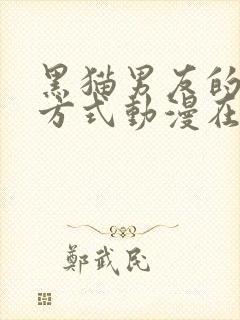 黑猫男友的
方式動漫在
鄭武民